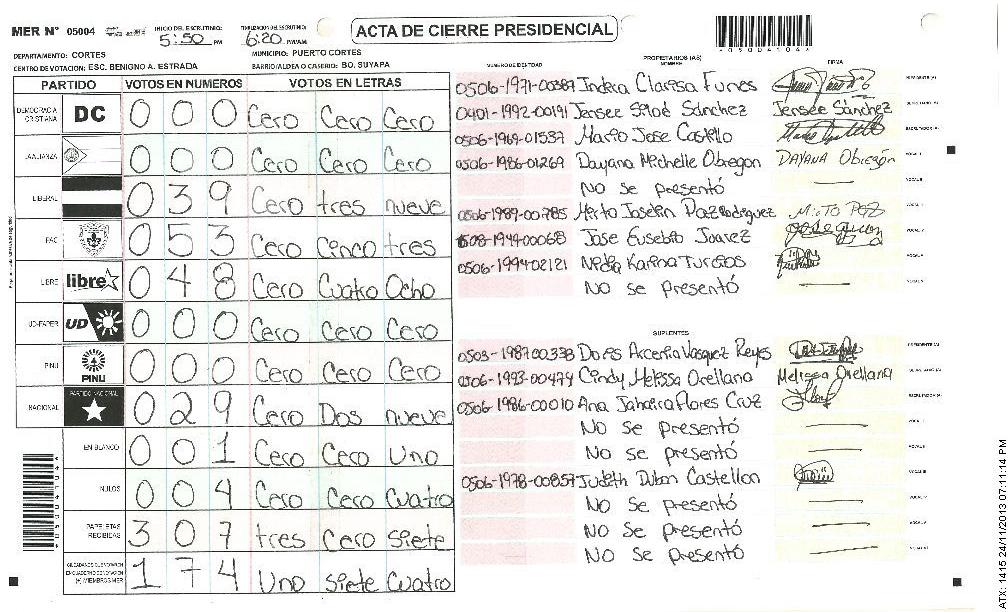 MER Nº 05004 INICIO DEL ESCRUTINIO: 5:50 PM FINALIZACION DEL ESCRUTINIO: 6:20 PM/AM
ACTA DE CIERRE PRESIDENCIAL
DEPARTAMENTO: CORTES MUNICIPIO: PUERTO CORTES
CENTRO DE VOTACION: ESC. BENIGNO A. ESTRADA BARRIO/ALDEA O CASERIO: BO. SUYAPA
PARTIDO VOTOS EN NUMEROS VOTOS EN LETRAS
DEMOCRACIA CRISTIANA DC 0 0 0 Cero Cero Cero
LA ALIANZA 0 0 0 Cero Cero Cero
LIBERAL 0 3 9 Cero tres nueve
PAC 0 5 3 Cero Cinco tres
LIBRE libre 0 4 8 Cero Cuatro Ocho
UD-FAPER UD 0 0 0 Cero Cero Cero
PINU PINU 0 0 0 Cero Cero Cero
NACIONAL PARTIDO NACIONAL 0 2 9 Cero Dos nueve
EN BLANCO 0 0 1 Cero Cero Uno
NULOS 0 0 4 Cero Cero Cuatro
PAPELETAS RECIBIDAS 3 0 7 tres Cero Siete
(+) MIEMBROS MER 1 7 4 Uno Siete Cuatro
PROPIETARIOS (AS)
NUMERO DE IDENTIDAD NOMBRE FIRMA
0506-1971-00389 Indira Clarisa Funes
0401-1992-00191 Jensee Sánchez Jensée Sánchez
0506-1969-01537 Mario Jose Castillo
0506-1986-01269 Dayana Michelle Obregon DAYANA Obregón
NO Se presentó
0506-1989-00785 Mirto Joselin Paz Rodriguez Mirto Paz
1508-1949-00068 Jose Eusebio Juarez
0506-1994-02121 Karina Turcios
NO Se presentó
SUPLENTES
0503-1987-00338 Vasquez Reyes
0506-1993-00479 Cindy Melissa Orellana Melissa Orellana
0506-1986-00010 Ana Jahaira Flores Cruz
NO Se presentó
NO Se presentó
0506-1978-00857 Judith Castellon
NO Se presentó
NO Se presentó
NO Se presentó
ATX: 1415 24/11/2013 07:11:14 PM